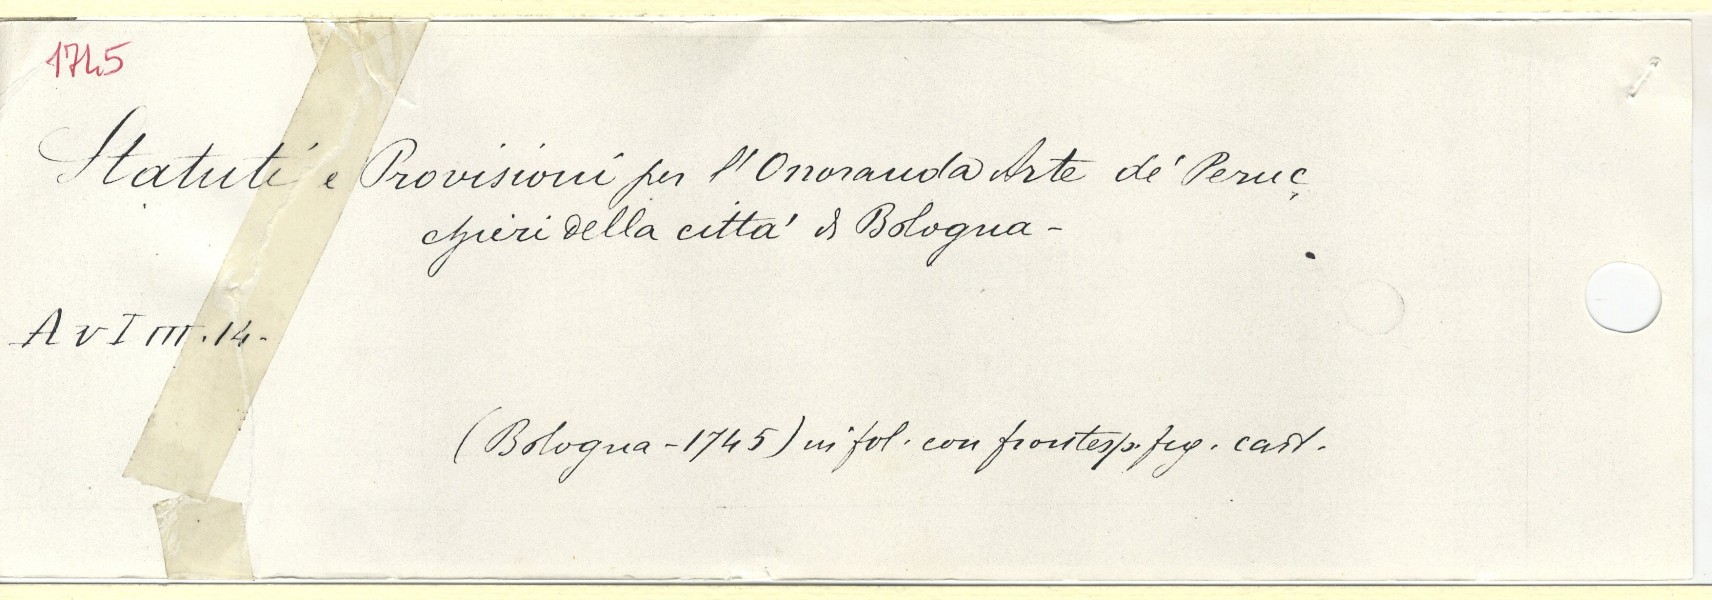 1745
Statuti e Provisioni per l'Onoranda Arte dé Peruc
chieri della città di Bologna -
A V I III. 14.
(Bologna - 1745) in fol. con frontesp. fig. cart.